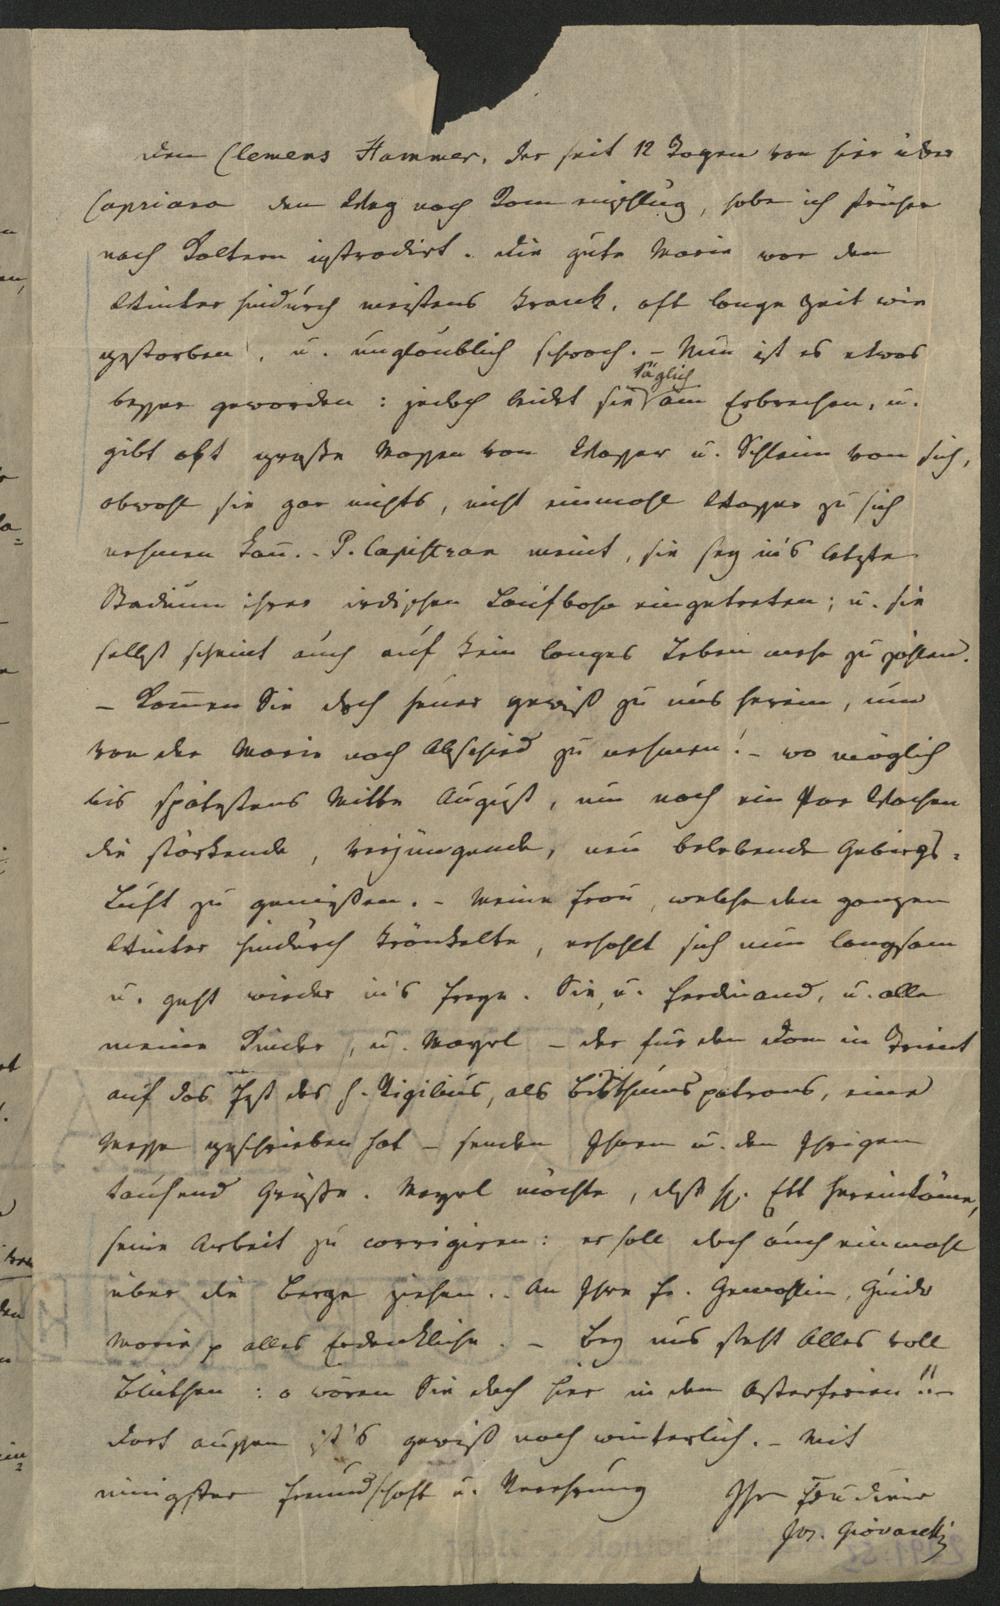 Den Clemens Hammer, der seit 12 Tagen von hier über
Capriana den Weg nach Rom einschlug, habe ich früher
nach Kaltern instradirt. Die gute Marie war den
Winter hindurch meistens krank, oft lange Zeit wie
gestorben, u. unglaublich schwach. – Nun ist es etwas
besser geworden: jedoch leidet sie täglich am Erbrechen, u.
gibt oft große Massen von Wasser u. Schleim von sich,
obwohl sie gar nichts, nicht einmahl Wasser zu sich
nehmen kañ. – P. Capistran meint, sie sey in's letzte
Stadium ihrer irdischen Laufbahn eingetreten; u. sie
selbst scheint auch auf kein langes Leben mehr zu zählen.
– Kom̄en Sie doch heuer gewiß zu uns herein, um
von der Marie noch Abschied zu nehmen! – wo möglich
bis spätestens Mitte August, um noch ein Par Wochen
die stärkende, verjüngende, neu belebende Gebirgs=
Luft zu genießen. – Meine Frau, welche den ganzen
Winter hindurch kränkelte, erhohlt sich nun langsam
u. geht wieder in's Freye. Sie, u. Ferdinand, u. alle
meine Kinder, u. Mayrl – der für den Dom in Trient
auf das Fest des h. Vigilius, als Bisthumspatrons, eine
Messe geschrieben hat – senden Ihnen u. den Ihrigen
tausend Grüße. Mayrl möchte, daß H. Ett hereinkäme,
seine Arbeit zu corrigiren: er soll doch auch einmahl
über die Berge ziehen. – An Ihre Fr. Gemahlin, Guido
Marie p alles Erdenkliche. – Bey uns steht Alles voll
Blüthen: o wären Sie doch hier in den Osterferien!! –
Dort aussen ist's gewiß noch winterlich. – Mit
innigster Freundschaft u. Verehrung Ihr
Jos. Giovanelli